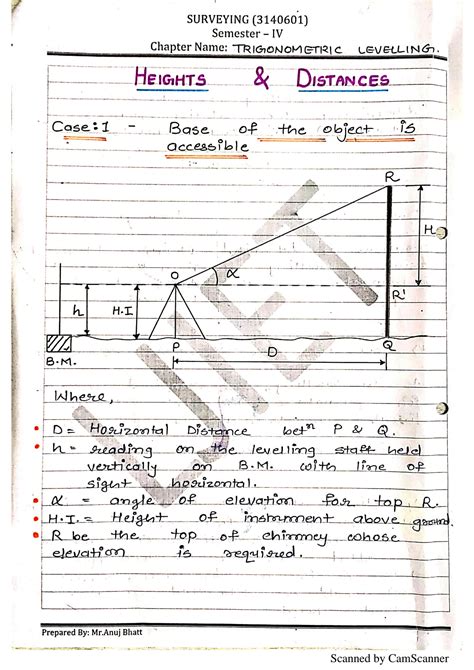 SURVEYING (3140601)
Semester – IV
Chapter Name: TRIGONOMETRIC LEVELLING.
HEIGHTS & DISTANCES
Case:1 - Base of the object is
accessible
R
H
O
α
R'
h
H.I
P
Q
D
B.M.
Where,
D = Horizontal Distance betn P & Q.
h = reading on the levelling staff held
vertically on B.M. with line of
sight horizontal.
α = angle of elevation for top R.
H.I. = Height of instrument above ground.
R be the top of chimney whose
elevation is required.
Prepared By: Mr.Anuj Bhatt
Scanned by CamScanner